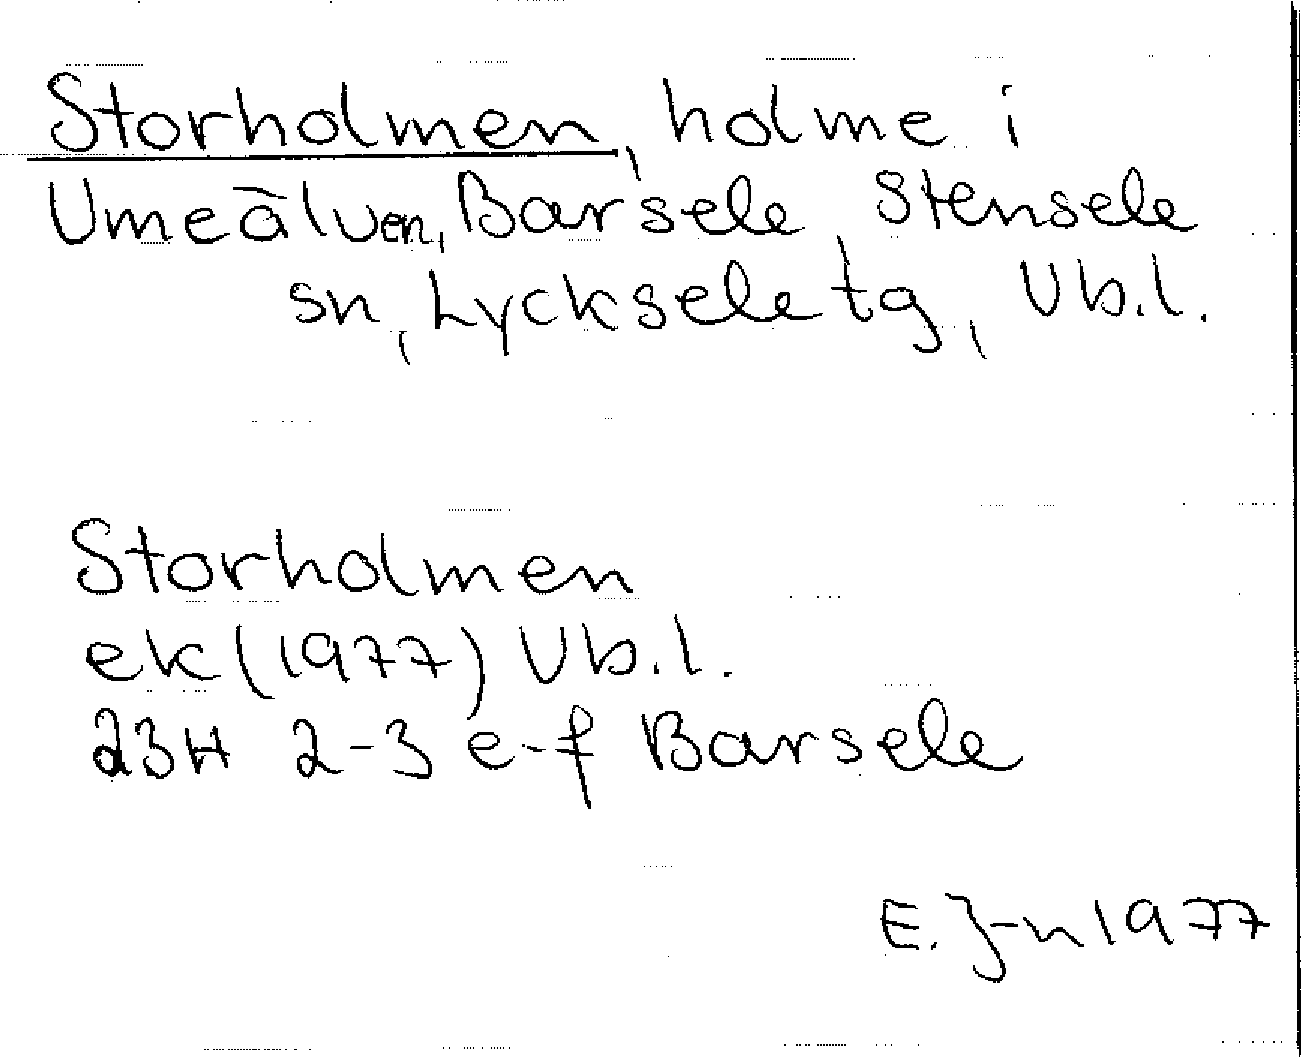 Storholmen, holme i
Umeälven, Barsele, Stensele
sn, Lycksele tg, Vb.l.
Storholmen
ek (1977) Vb.l.
23H 2-3 e-f Barsele
E. J-n 1977